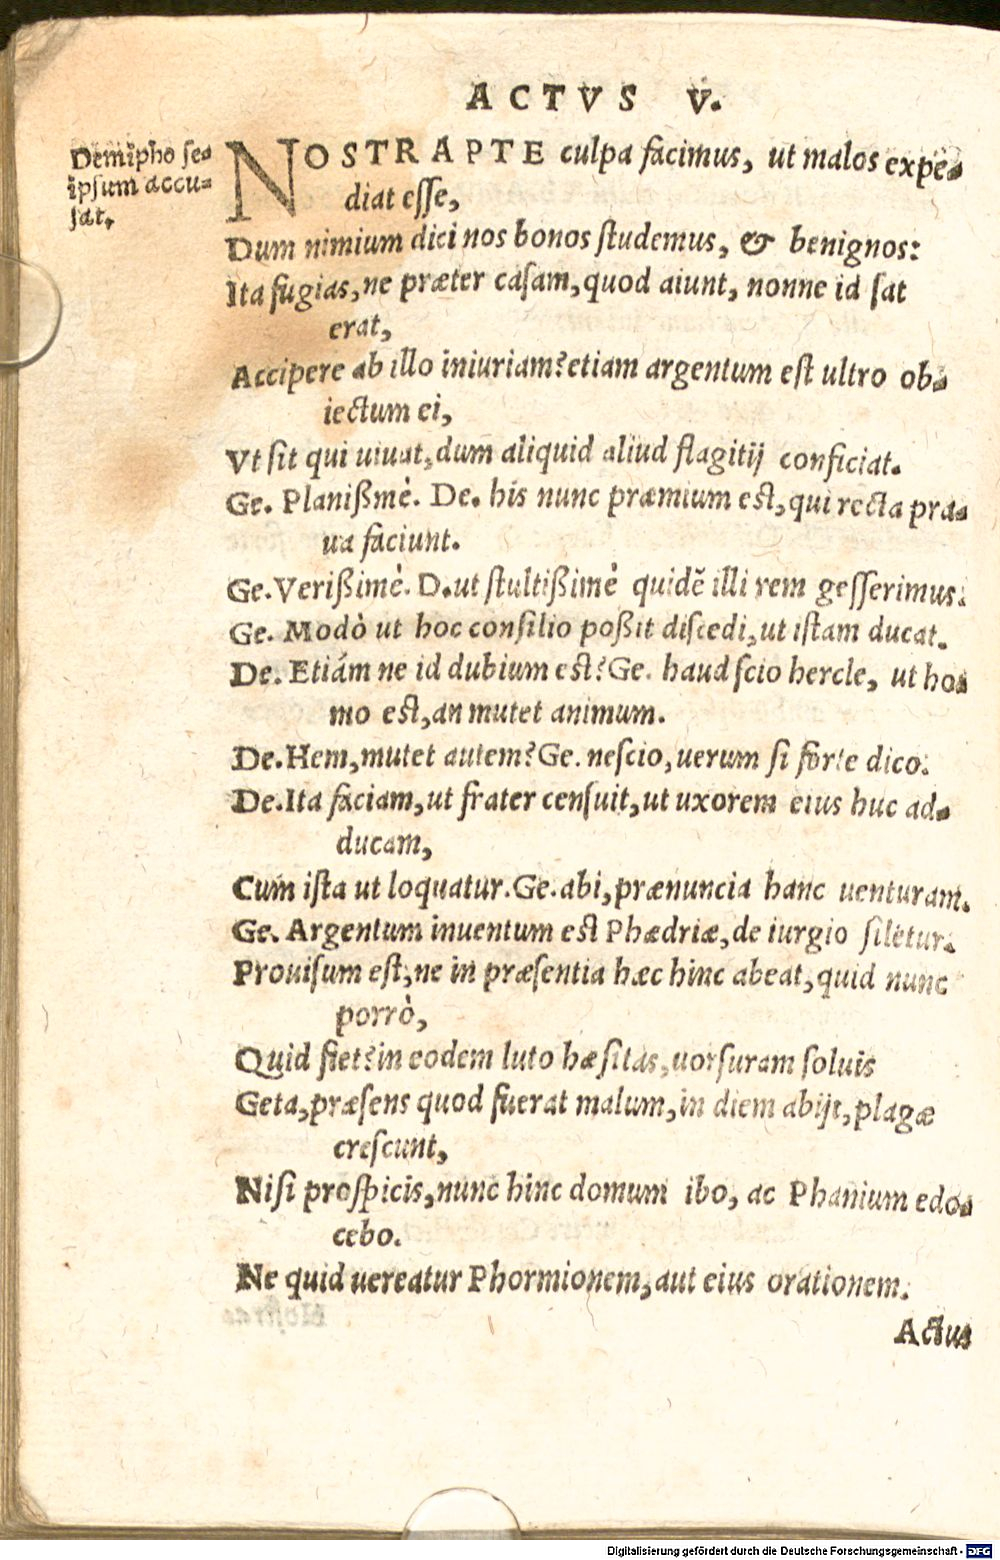 ACTVS V.
Demipho se-
ipsum accu-
sat.
NOSTRAPTE culpa facimus, ut malos expe-
diat esse,
Dum nimium dici nos bonos studemus, & benignos:
Ita fugias, ne præter casam, quod aiunt, nonne id sat
erat,
Accipere ab illo iniuriam? etiam argentum est ultro ob-
iectum ei,
Vt sit qui uiuat, dum aliquid aliud flagitij conficiat.
Ge. Planißmè. De. his nunc præmium est, qui recta pra-
ua faciunt.
Ge. Verißimè. D. ut stultißimè quidẽ illi rem gesserimus.
Ge. Modò ut hoc consilio poßit discedi, ut istam ducat.
De. Etiám ne id dubium est? Ge. haud scio hercle, ut ho-
mo est, an mutet animum.
De. Hem, mutet autem? Ge. nescio, uerum si forte dico.
De. Ita faciam, ut frater censuit, ut uxorem eius huc ad-
ducam,
Cum ista ut loquatur. Ge. abi, prænuncia hanc uenturam.
Ge. Argentum inuentum est Phædriæ, de iurgio siletur.
Prouisum est, ne in præsentia hæc hinc abeat, quid nunc
porrò,
Quid fiet? in eodem luto hæsitas, uorsuram soluis
Geta, præsens quod fuerat malum, in diem abijt, plagæ
crescunt,
Nisi prospicis, nunc hinc domum ibo, ac Phanium edo-
cebo.
Ne quid uereatur Phormionem, aut eius orationem.
Actus
Digitalisierung gefördert durch die Deutsche Forschungsgemeinschaft - DFG